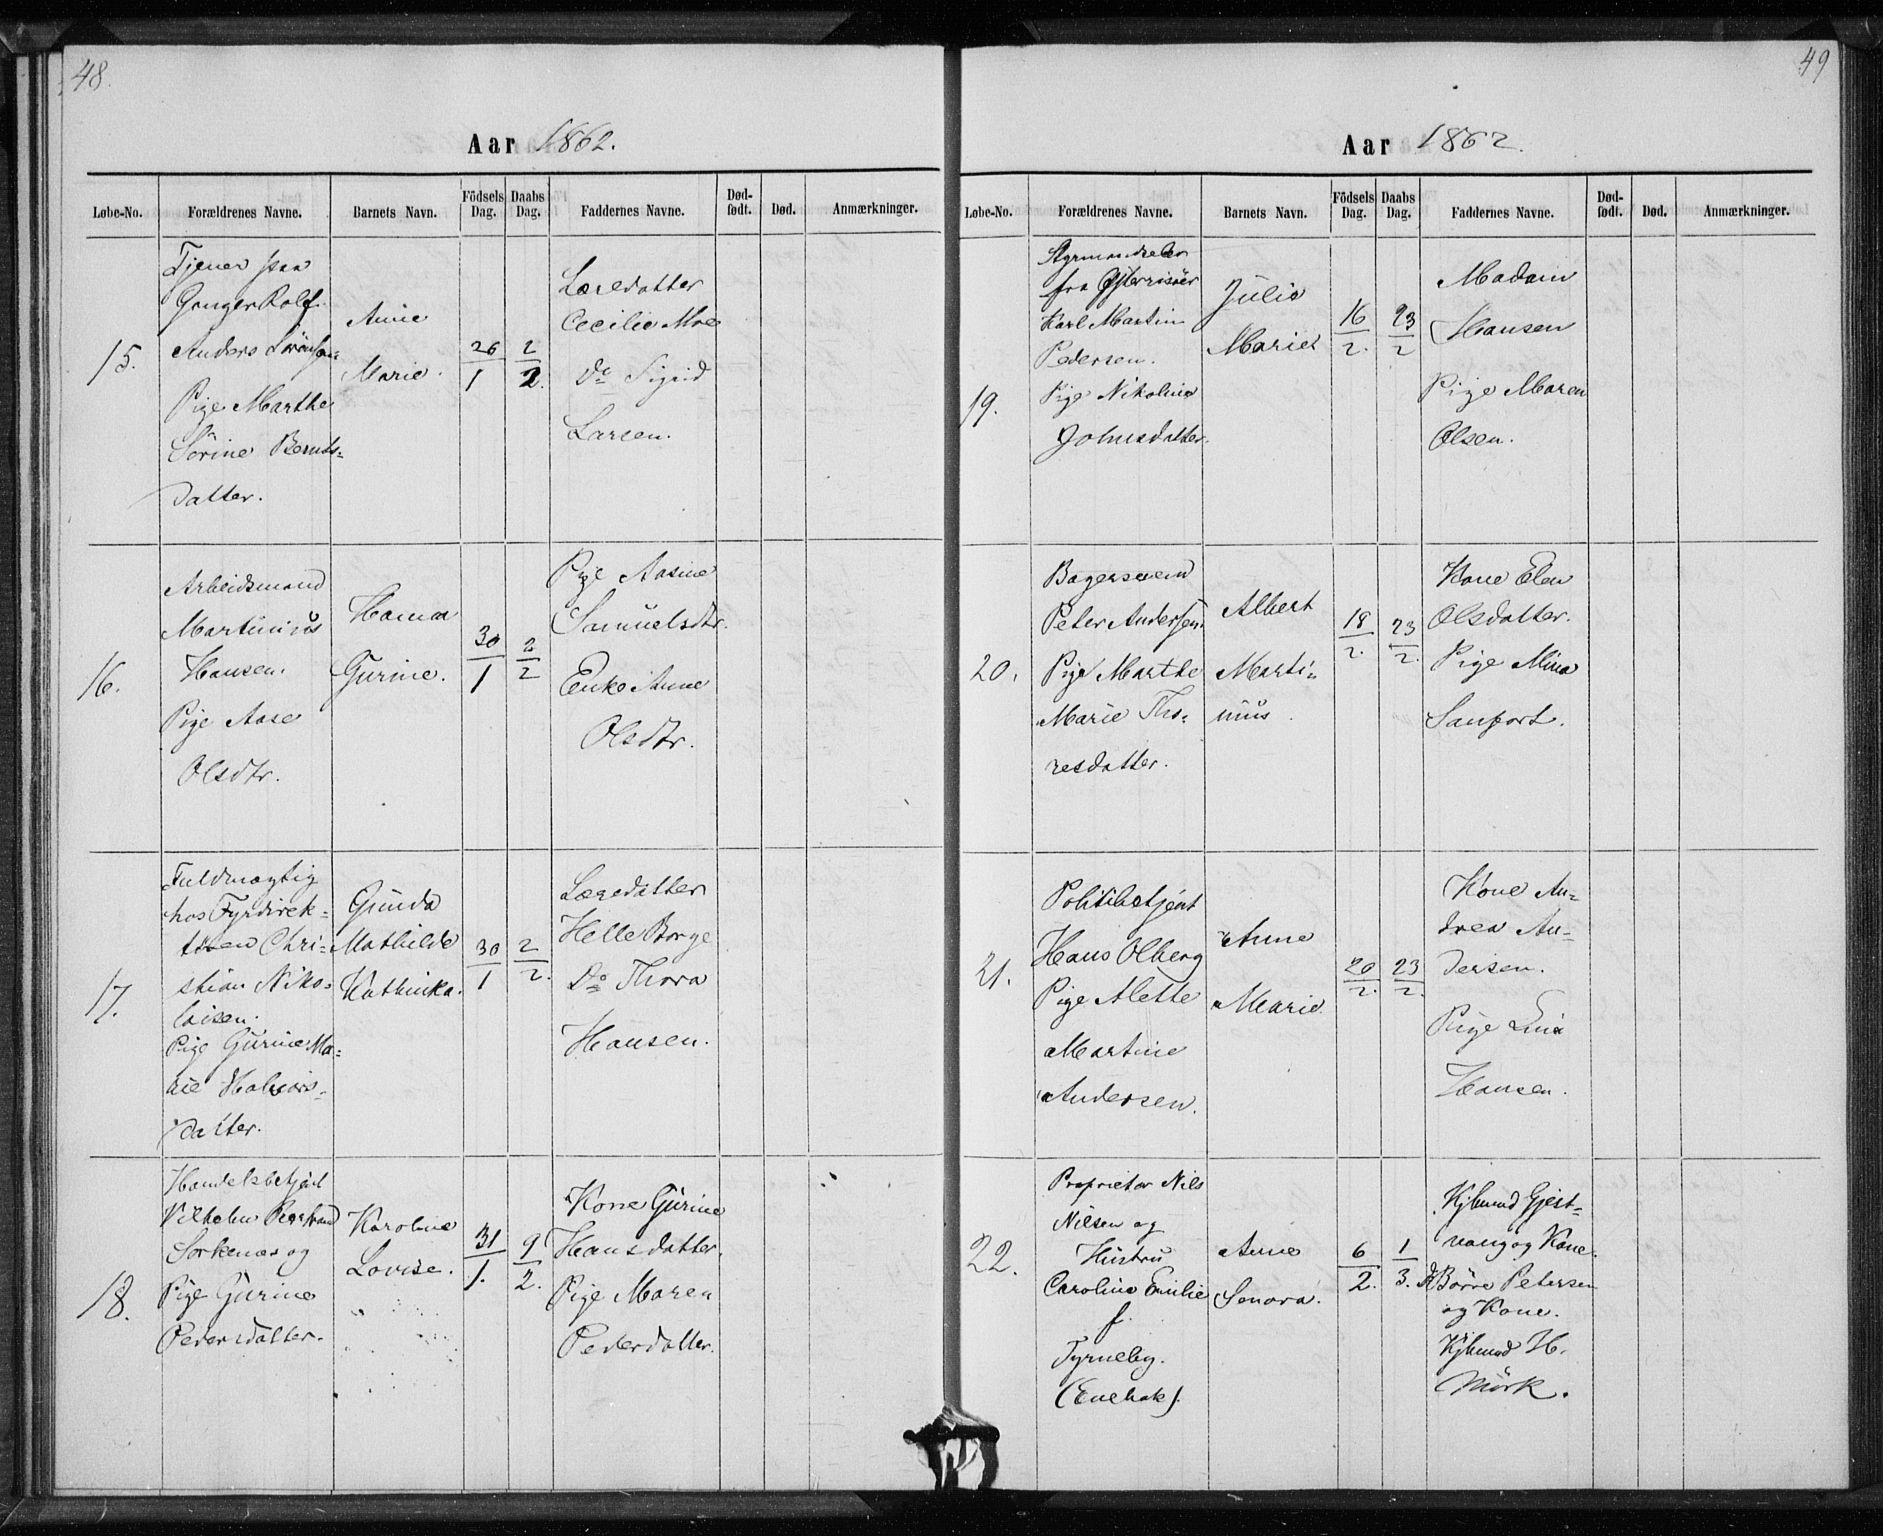 48.
Aar 1862.
Løbe-No. Forældrenes Navne. Barnets Navn. Födsels Dag. Daabs Dag. Faddernes Navne. Død-født. Død. Anmærkninger.
15.
Tjener paa
Ganger Rolf.
Anders Sörensen
Pige Marthe
Sörine Bernts=
datter.
Anne
Marie.
26/1
2/2.
Læredatter
Cecilie Moe
Do Sigrid
Larsen.
16.
Arbeidsmand
Martinius
Hansen.
Pige Aase
Olsdtr.
Hanna
Gurine.
30/1
2/2
Pige Aasine
Samuelsdtr.
Enke Anne
Olsdtr.
17.
Fuldmægtig
hos Fyrdirek=
tören Chri=
stian Niko=
laisen.
Pige Gurine Ma=
rie Halvors=
datter.
Gunda
Mathilde
Kathinka.
30/1
2/2.
Læredatter
Helle Borge
Do Thora
Hansen.
18.
Handelsbetjent
Vilhelm
Sorkenæs og
Pige Gurine
Pedersdatter.
Karoline
Lovise.
31/1.
9/2.
Kone Gurine
Hansdatter.
Pige Maren
Pederdatter.
49
Aar 1862.
Løbe-No. Forældrenes Navne. Barnets Navn. Födsels Dag. Daabs Dag. Faddernes Navne. Død-født. Død. Anmærkninger.
19.
fra Østerrisöer
Karl Martin
Pedersen.
Pige Nikoline
Johnsdatter.
Julie
Marie
16/2.
23/2
Madam
Hansen
Pige Maren
Olsen.
20.
Bagersvend
Peter Andersen.
Pige Marthe
Marie Tho=
resdatter.
Albert
Marti=
nius.
18/2.
23/2.
Kone Elen
Olsdatter.
Pige Mina
Sanfort.
21.
Politibetjent
Hans Olberg
Pige Alette
Martine
Andersen.
Anne
Marie.
20/2.
23/2.
Kone An=
drea An=
dersen.
Pige Lina
Hansen.
22.
Proprietær Nils
Nilsen og
Hustru
Caroline Emilie
f.
Tyrneby.
(Enebak).
Anne
Senora.
6/2.
1/3.
Kjbmnd Gjest=
vang og Kone.
Börre Petersen
og Kone.
Kjbmnd H.
Mörk.